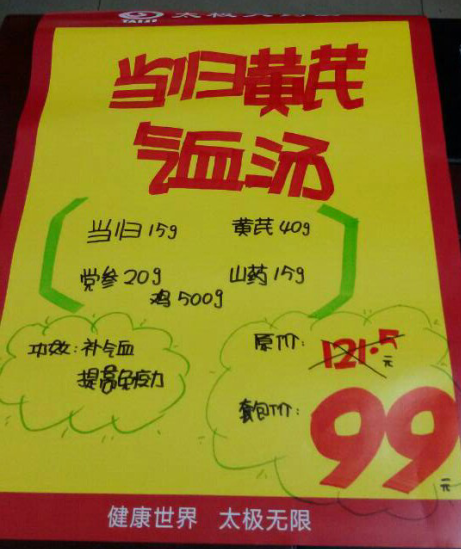 TAIJI
太极大药房
当归黄芪
气血汤
当归 15g 黄芪 40g
党参 20g 山药 15g
鸡 500g
功效: 补气血
提高免疫力
原价: 121.5元
套包价: 99元
健康世界 太极无限